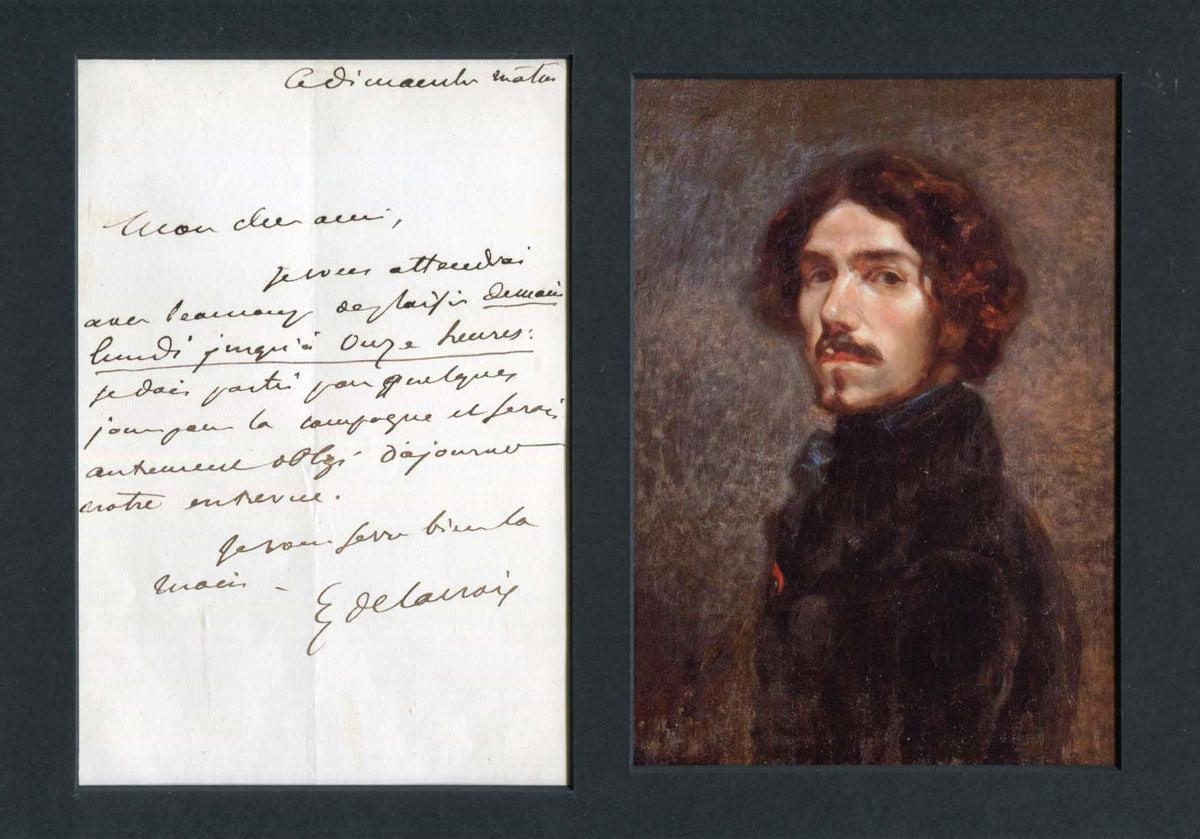 Ce dimanche matin
Mon cher ami,
Je vous attendrai
avec beaucoup de plaisir demain
lundi jusqu'à onze heures:
je dois partir pour quelques
jours pour la campagne et serais
autrement obligé d'ajourner
notre entrevue.
Je vous serre bien la
main -
E Delacroix